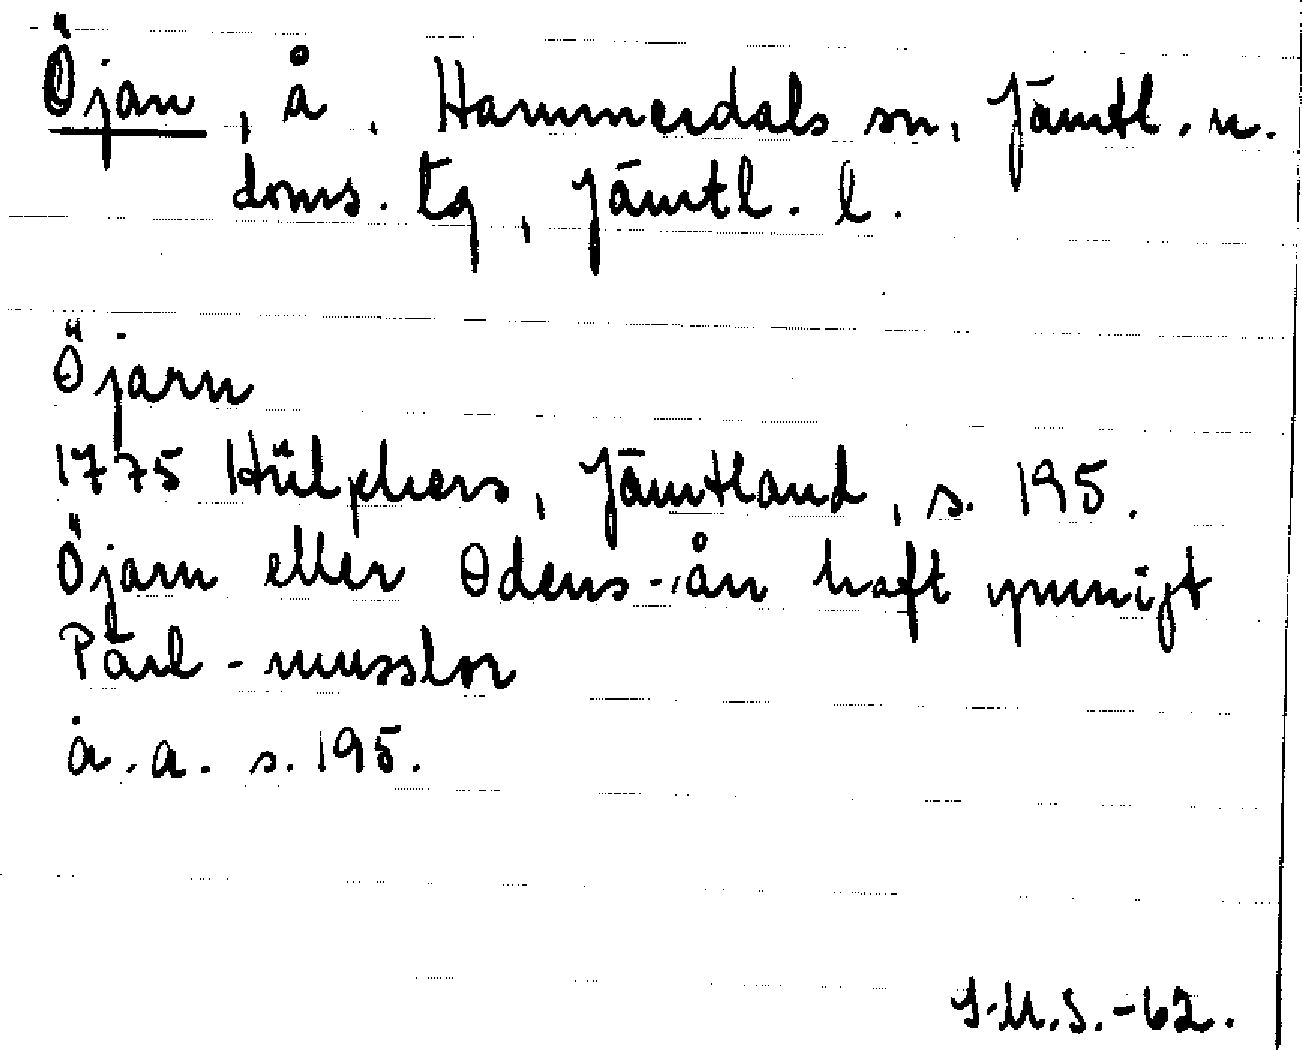 Öjan, å, Hammerdals sn, Jämtl. n.
doms. tg, Jämtl. l.
Öjarn
1775 Hülphers, Jämtland, s. 195.
Öjarn eller Odens-ån haft ymnigt
Pärl-musslor
a. a. s. 195.
I.M.S.-62.